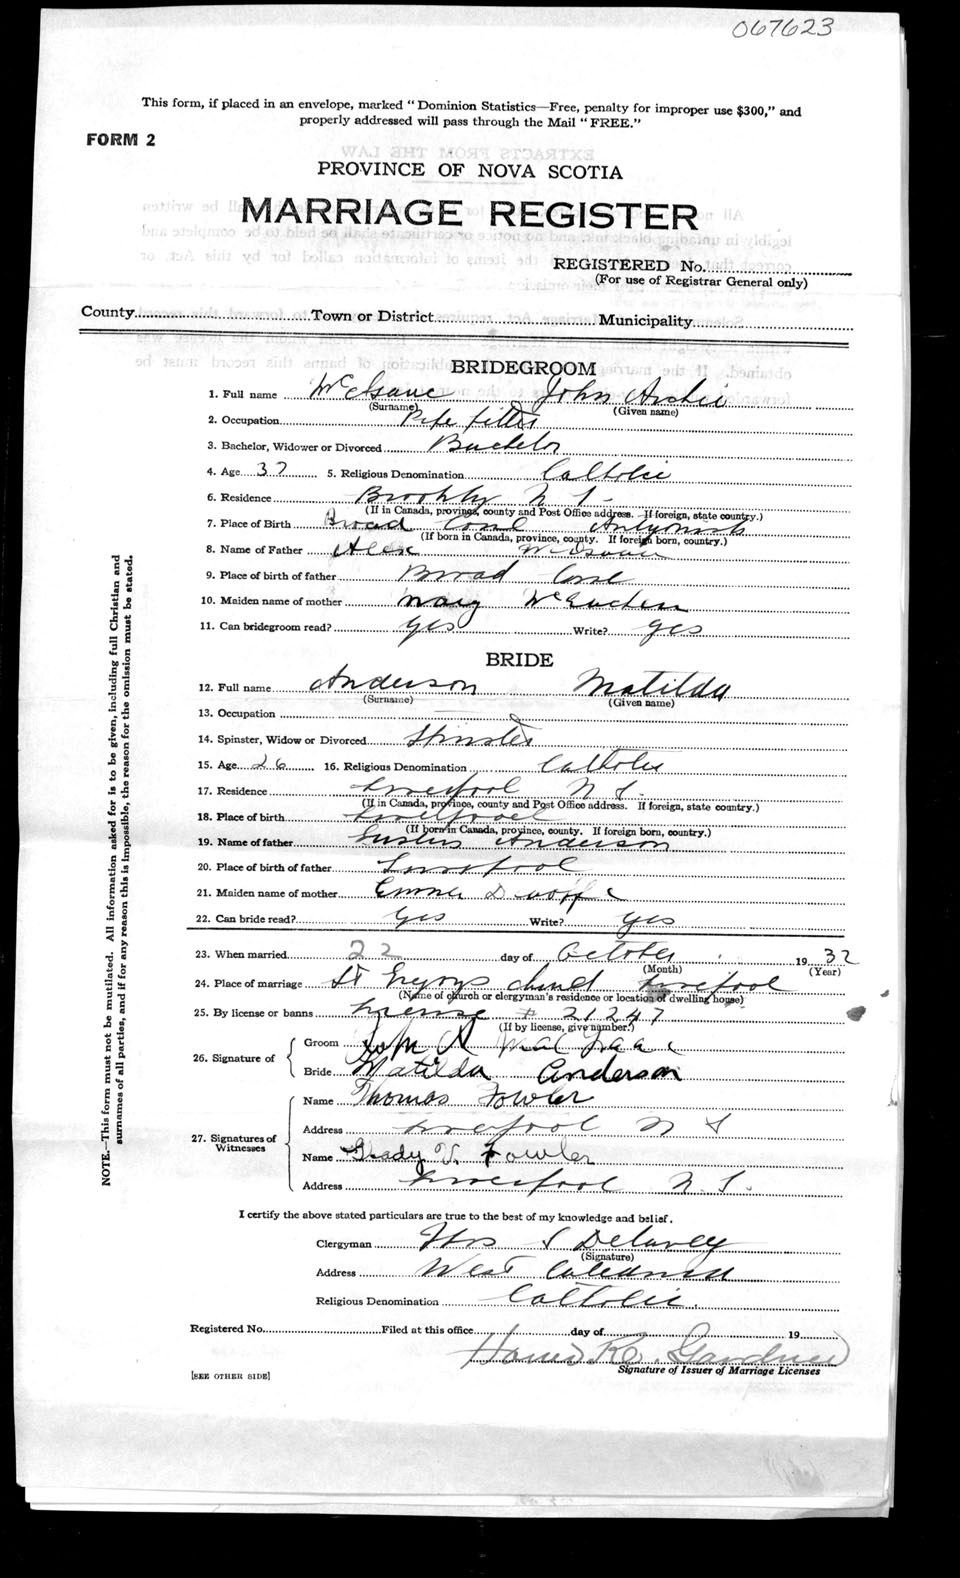 067623
This form, if placed in an envelope, marked "Dominion Statistics—Free, penalty for improper use $300," and
properly addressed will pass through the Mail "FREE."
FORM 2
PROVINCE OF NOVA SCOTIA
MARRIAGE REGISTER
REGISTERED No.
(For use of Registrar General only)
County Town or District Municipality
BRIDEGROOM
1. Full name McIsaac John Archie
(Surname) (Given name)
2. Occupation Pipe fitter
3. Bachelor, Widower or Divorced Bachelor
4. Age 37 5. Religious Denomination Catholic
6. Residence Brooklyn N S.
(If in Canada, province, county and Post Office address. If foreign, state country.)
7. Place of Birth Broad Cove
(If born in Canada, province, county. If foreign born, country.)
8. Name of Father Alex McIsaac
9. Place of birth of father Broad Cove
10. Maiden name of mother Mary McEachern
11. Can bridegroom read? yes Write? yes
BRIDE
12. Full name Anderson Matilda
(Surname) (Given name)
13. Occupation
14. Spinster, Widow or Divorced Spinster
15. Age 26 16. Religious Denomination Catholic
17. Residence Liverpool N S.
(If in Canada, province, county and Post Office address. If foreign, state country.)
18. Place of birth Liverpool
(If born in Canada, province, county. If foreign born, country.)
19. Name of father Anderson
20. Place of birth of father Liverpool
21. Maiden name of mother
22. Can bride read? yes Write? yes
23. When married 22 day of October 1932
(Month) (Year)
24. Place of marriage St Church Liverpool
(Name of church or clergyman's residence or location of dwelling house)
25. By license or banns License # 21247
(If by license, give number.)
26. Signature of Groom John A MacIsaac
Bride Matilda Anderson
27. Signatures of Witnesses
Name Thomas Fowler
Address Liverpool N S
Name V. Fowler
Address Liverpool N.S.
I certify the above stated particulars are true to the best of my knowledge and belief.
Clergyman Thos S Delaney
(Signature)
Address West Caledonia
Religious Denomination Catholic.
Registered No. Filed at this office day of 19
Signature of Issuer of Marriage Licenses
[SEE OTHER SIDE]
NOTE.—This form must not be mutilated. All information asked for is to be given, including full Christian and
surnames of all parties, and if for any reason this is impossible, the reason for the omission must be stated.